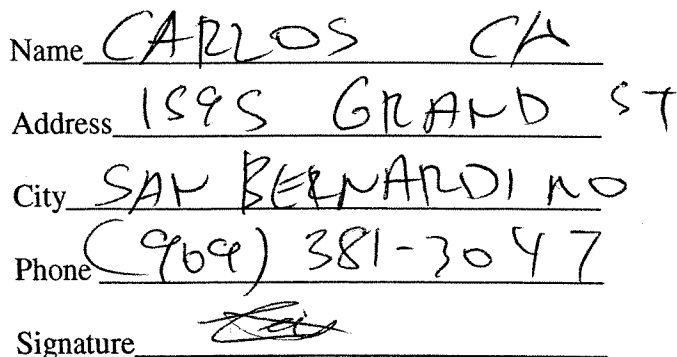 Name CARLOS CH
Address 1595 GRAND ST
City SAN BERNARDINO
Phone (909) 381-3047
Signature